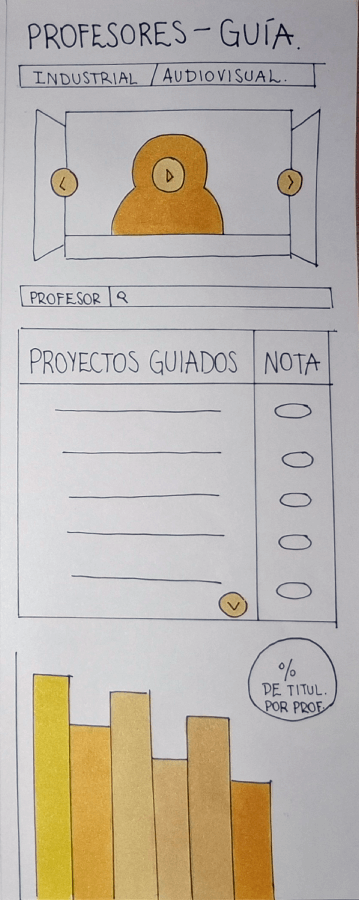 PROFESORES - GUÍA.
INDUSTRIAL / AUDIOVISUAL.
PROFESOR
PROYECTOS GUIADOS NOTA
%
DE TITUL.
POR PROF.